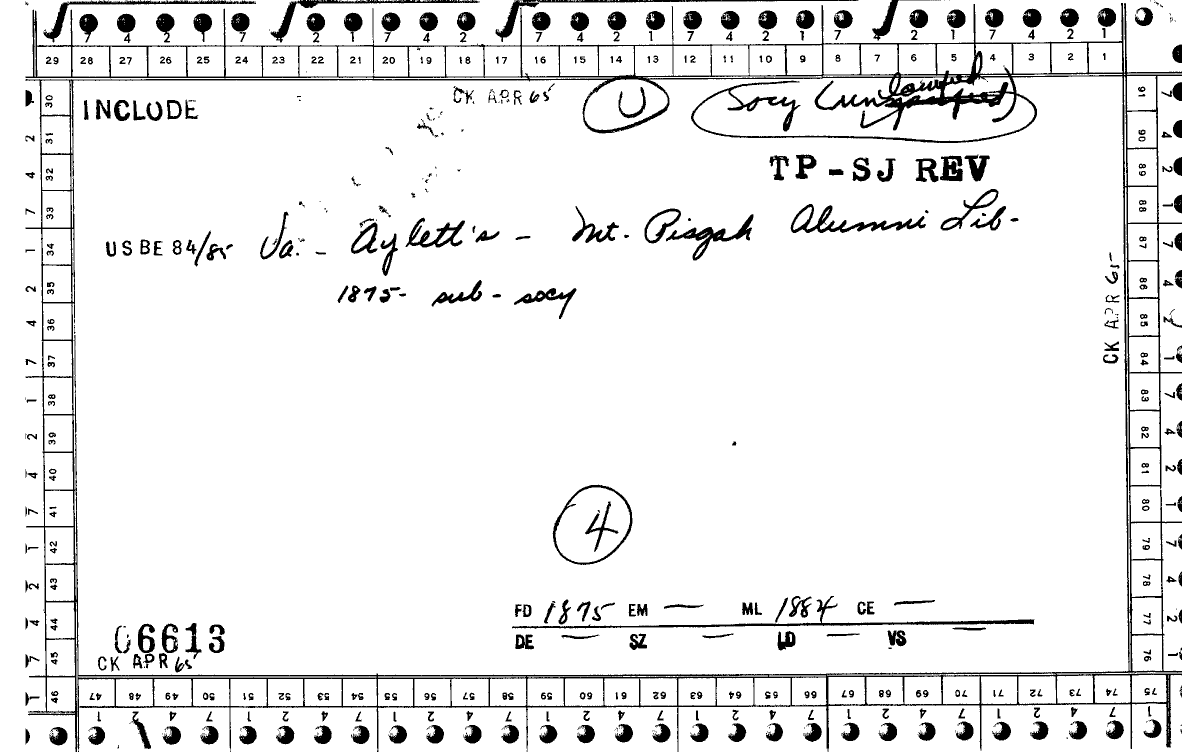 7 4 2 1 7 4 2 1 7 4 2 1 7 4 2 1 7 4 2 1 7 4 2 1 7 4 2 1
29 28 27 26 25 24 23 22 21 20 19 18 17 16 15 14 13 12 11 10 9 8 7 6 5 4 3 2 1
INCLUDE
CK APR 65
U
Socy (unclassified)
TP-SJ REV
USBE 84/85 Va. - Aylett's - Mt. Pisgah Alumni Lib-
1875- sub-socy
CK APR 65
4
FD 1875 EM — ML 1884 CE —
DE — SZ — LD — VS —
06613
CK APR 65
30 31 32 33 34 35 36 37 38 39 40 41 42 43 44 45 46
91 90 89 88 87 86 85 84 83 82 81 80 79 78 77 76
47 48 49 50 51 52 53 54 55 56 57 58 59 60 61 62 63 64 65 66 67 68 69 70 71 72 73 74 75
1 2 4 7 1 2 4 7 1 2 4 7 1 2 4 7 1 2 4 7 1 2 4 7 1 2 4 7 1